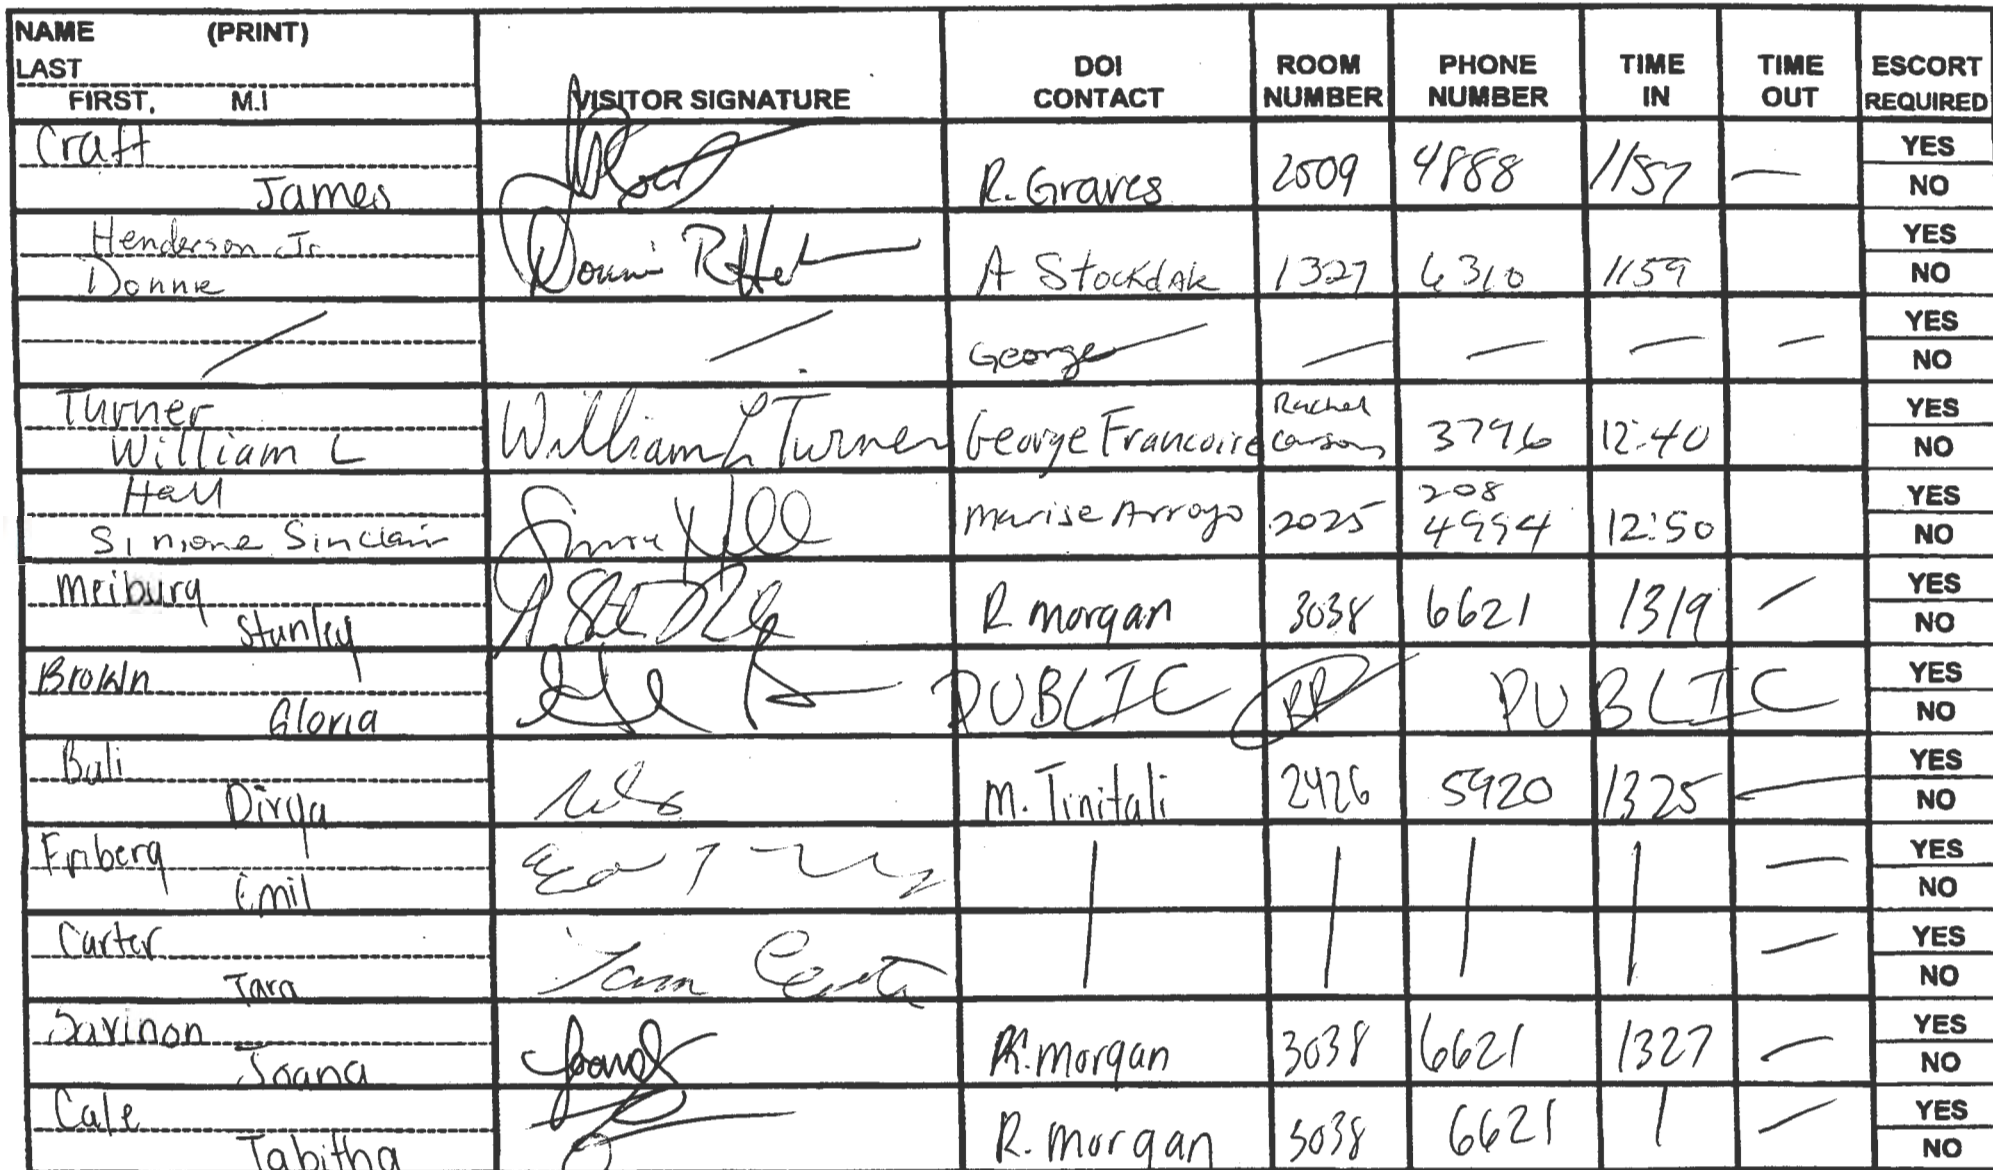 NAME (PRINT)
LAST
FIRST, M.I
VISITOR SIGNATURE
DOI CONTACT
ROOM NUMBER
PHONE NUMBER
TIME IN
TIME OUT
ESCORT REQUIRED
Craft
James
R. Graves 2509 4888 1157 — YES
NO
Henderson Jr
Donnie
A Stockdale 1327 6310 1159 YES
NO
George — — — — YES
NO
Turner
William L
William L Turner George Francoire Rachel Carson 3796 12:40 YES
NO
Hall
Simone Sinclair
Marise Arroyo 2025 208 4994 12:50 YES
NO
Meiburg
Stanley
R. morgan 3038 6621 1319 — YES
NO
Brown
Gloria
PUBLIC RR PUBLIC YES
NO
Bali
Divya
M. Tinitali 2426 5920 1325 — YES
NO
Emil
— YES
NO
Carter
Tara
Tara Carter — YES
NO
Savinon
Joana
R. morgan 3038 6621 1327 — YES
NO
Cale
Tabitha
R. morgan 3038 6621 — YES
NO